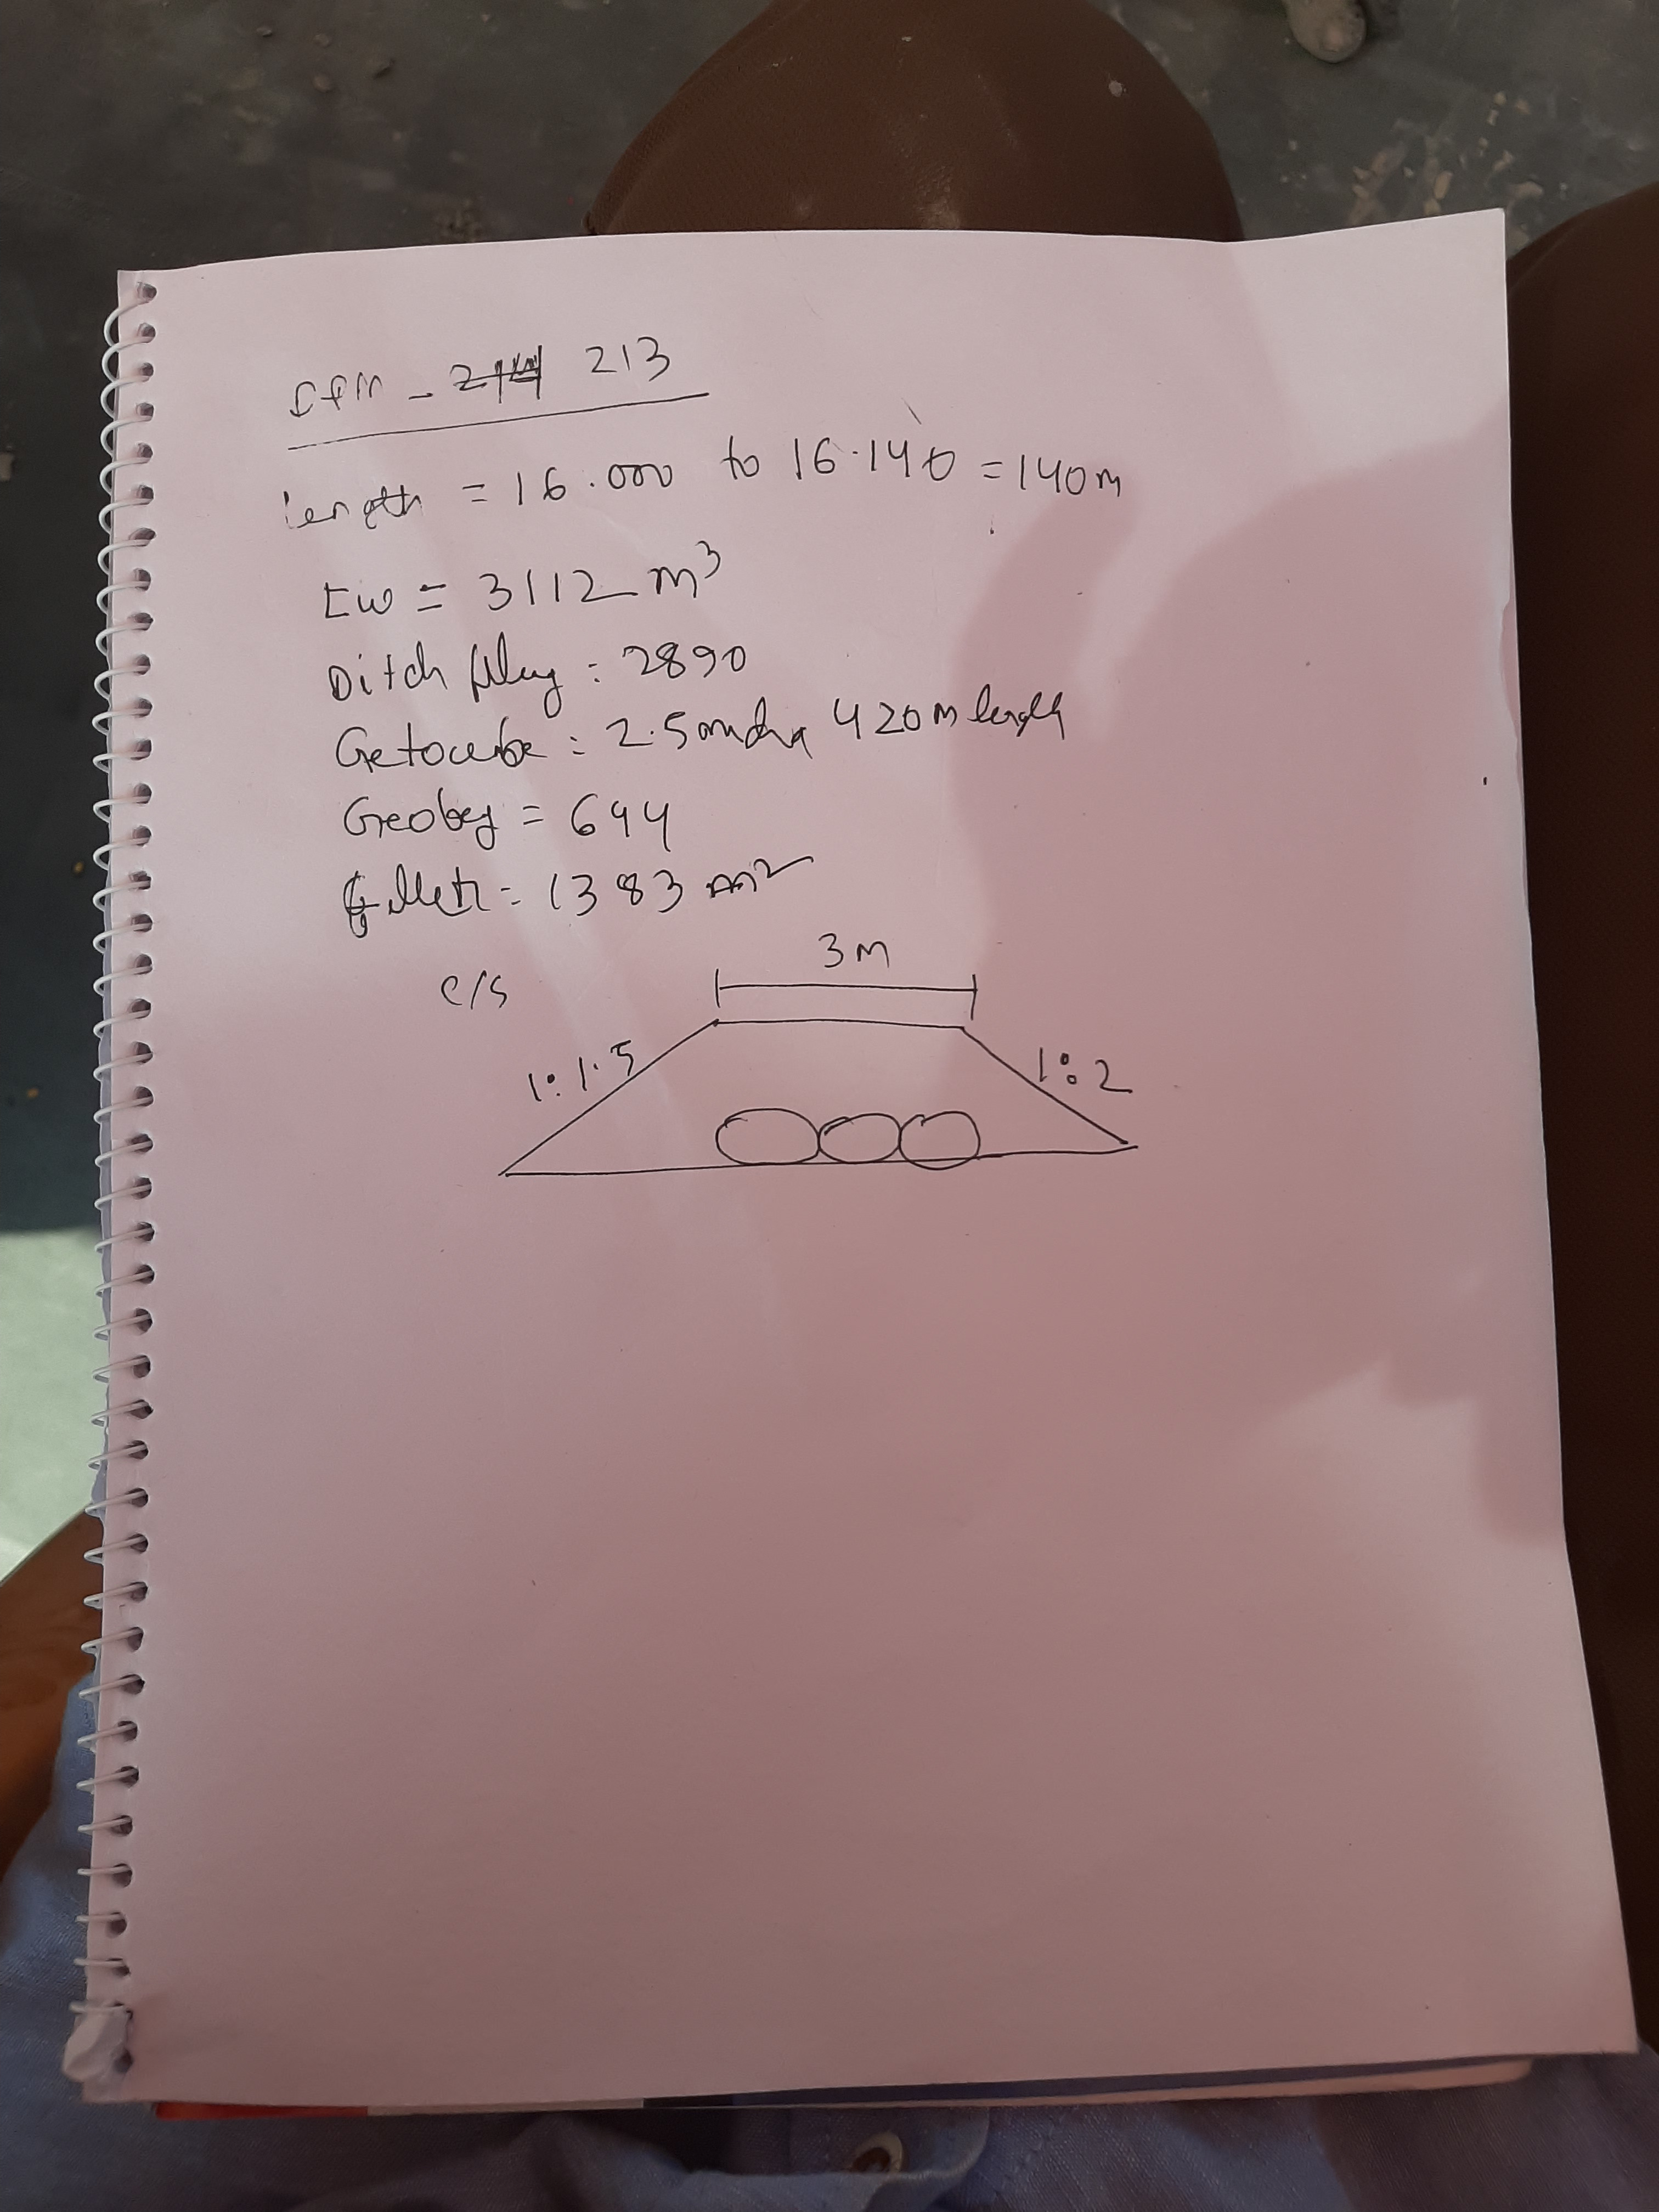 213
length = 16.000 to 16.140 = 140m
EW = 3112 m³
Ditch filling : 2890
Getocube : 2.5m dia 420m length
Geobag = 644
= 1383 m²
3m
C/S
1:1.5
1:2